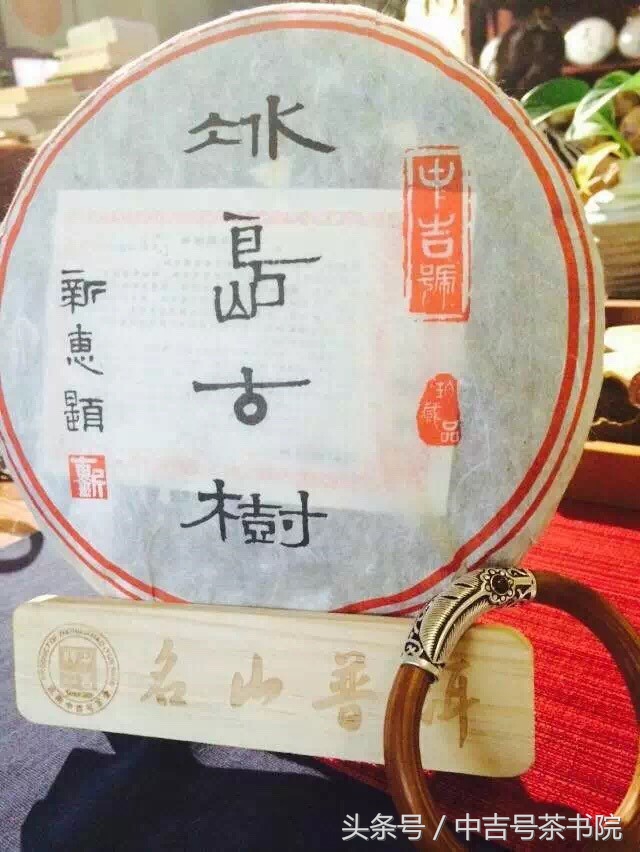 冰島古樹
中吉號
珍藏品
新惠題
名山普洱
头条号 / 中吉号茶书院